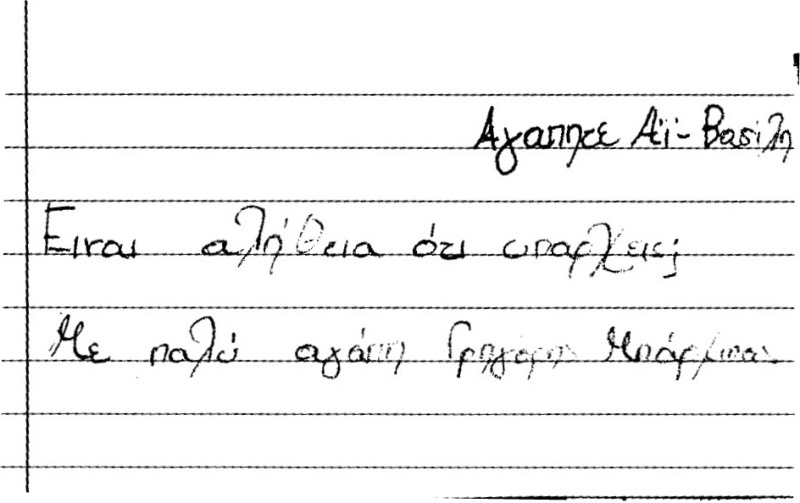 Αγαπητε Αϊ-Βασιλη
Ειναι αλήθεια ότι υπαρχεις;
Με παλύ αγάπη Γρηγόρης